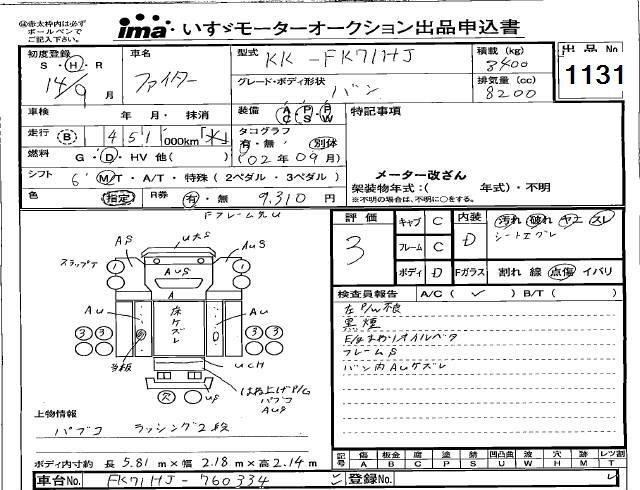 ㊟赤太枠内は必ず
ボールペンで
ご記入下さい。
ima いすゞモーターオークション出品申込書
初度登録
S・H・R
14/9 月
車名
ファイター
型式
KK-FK71HJ
積載 (kg)
3400
グレード・ボディ形状
バン
排気量 (cc)
8200
出品No
1131
車検 年 月・抹消
装備
A/C P/S P/W
特記事項
走行 B 451 000km「米」
タコグラフ
有・無 別体
(02年09月)
燃料 G・D・HV 他( )
シフト 6 M/T・A/T・特殊(2ペダル・3ペダル)
メーター改ざん
架装物年式:( 年式)・不明
※不明の場合は、不明に○をする。
色 指定 R券 有・無 9,310 円
評価
3
キャブ C
フレーム C
ボディ D
内装 D
汚れ 破れ ヤニ スレ
シートエグレ
Fガラス 割れ 線 点傷 イバリ
AS
UきS
AUS
スラップ下
AUS
A
AU
床ケズレ
AU
UCH
はね上げP/G
パブコ
AUS
US
検査員報告 A/C( ✓ ) B/T( )
左P/W不良
黒煙
E/gまわりオイルベタ
フレームS
バン内AUケズレ
上物情報
パブコ ラッシング2段
ボディ内寸約 長5.81m×幅2.18m×高2.14m
記号 傷A 板金B 腐C 塗P 錆S 凹凸曲U 波W 穴H 跡M レンズ割T
車台No. FK71HJ-760334
登録No.